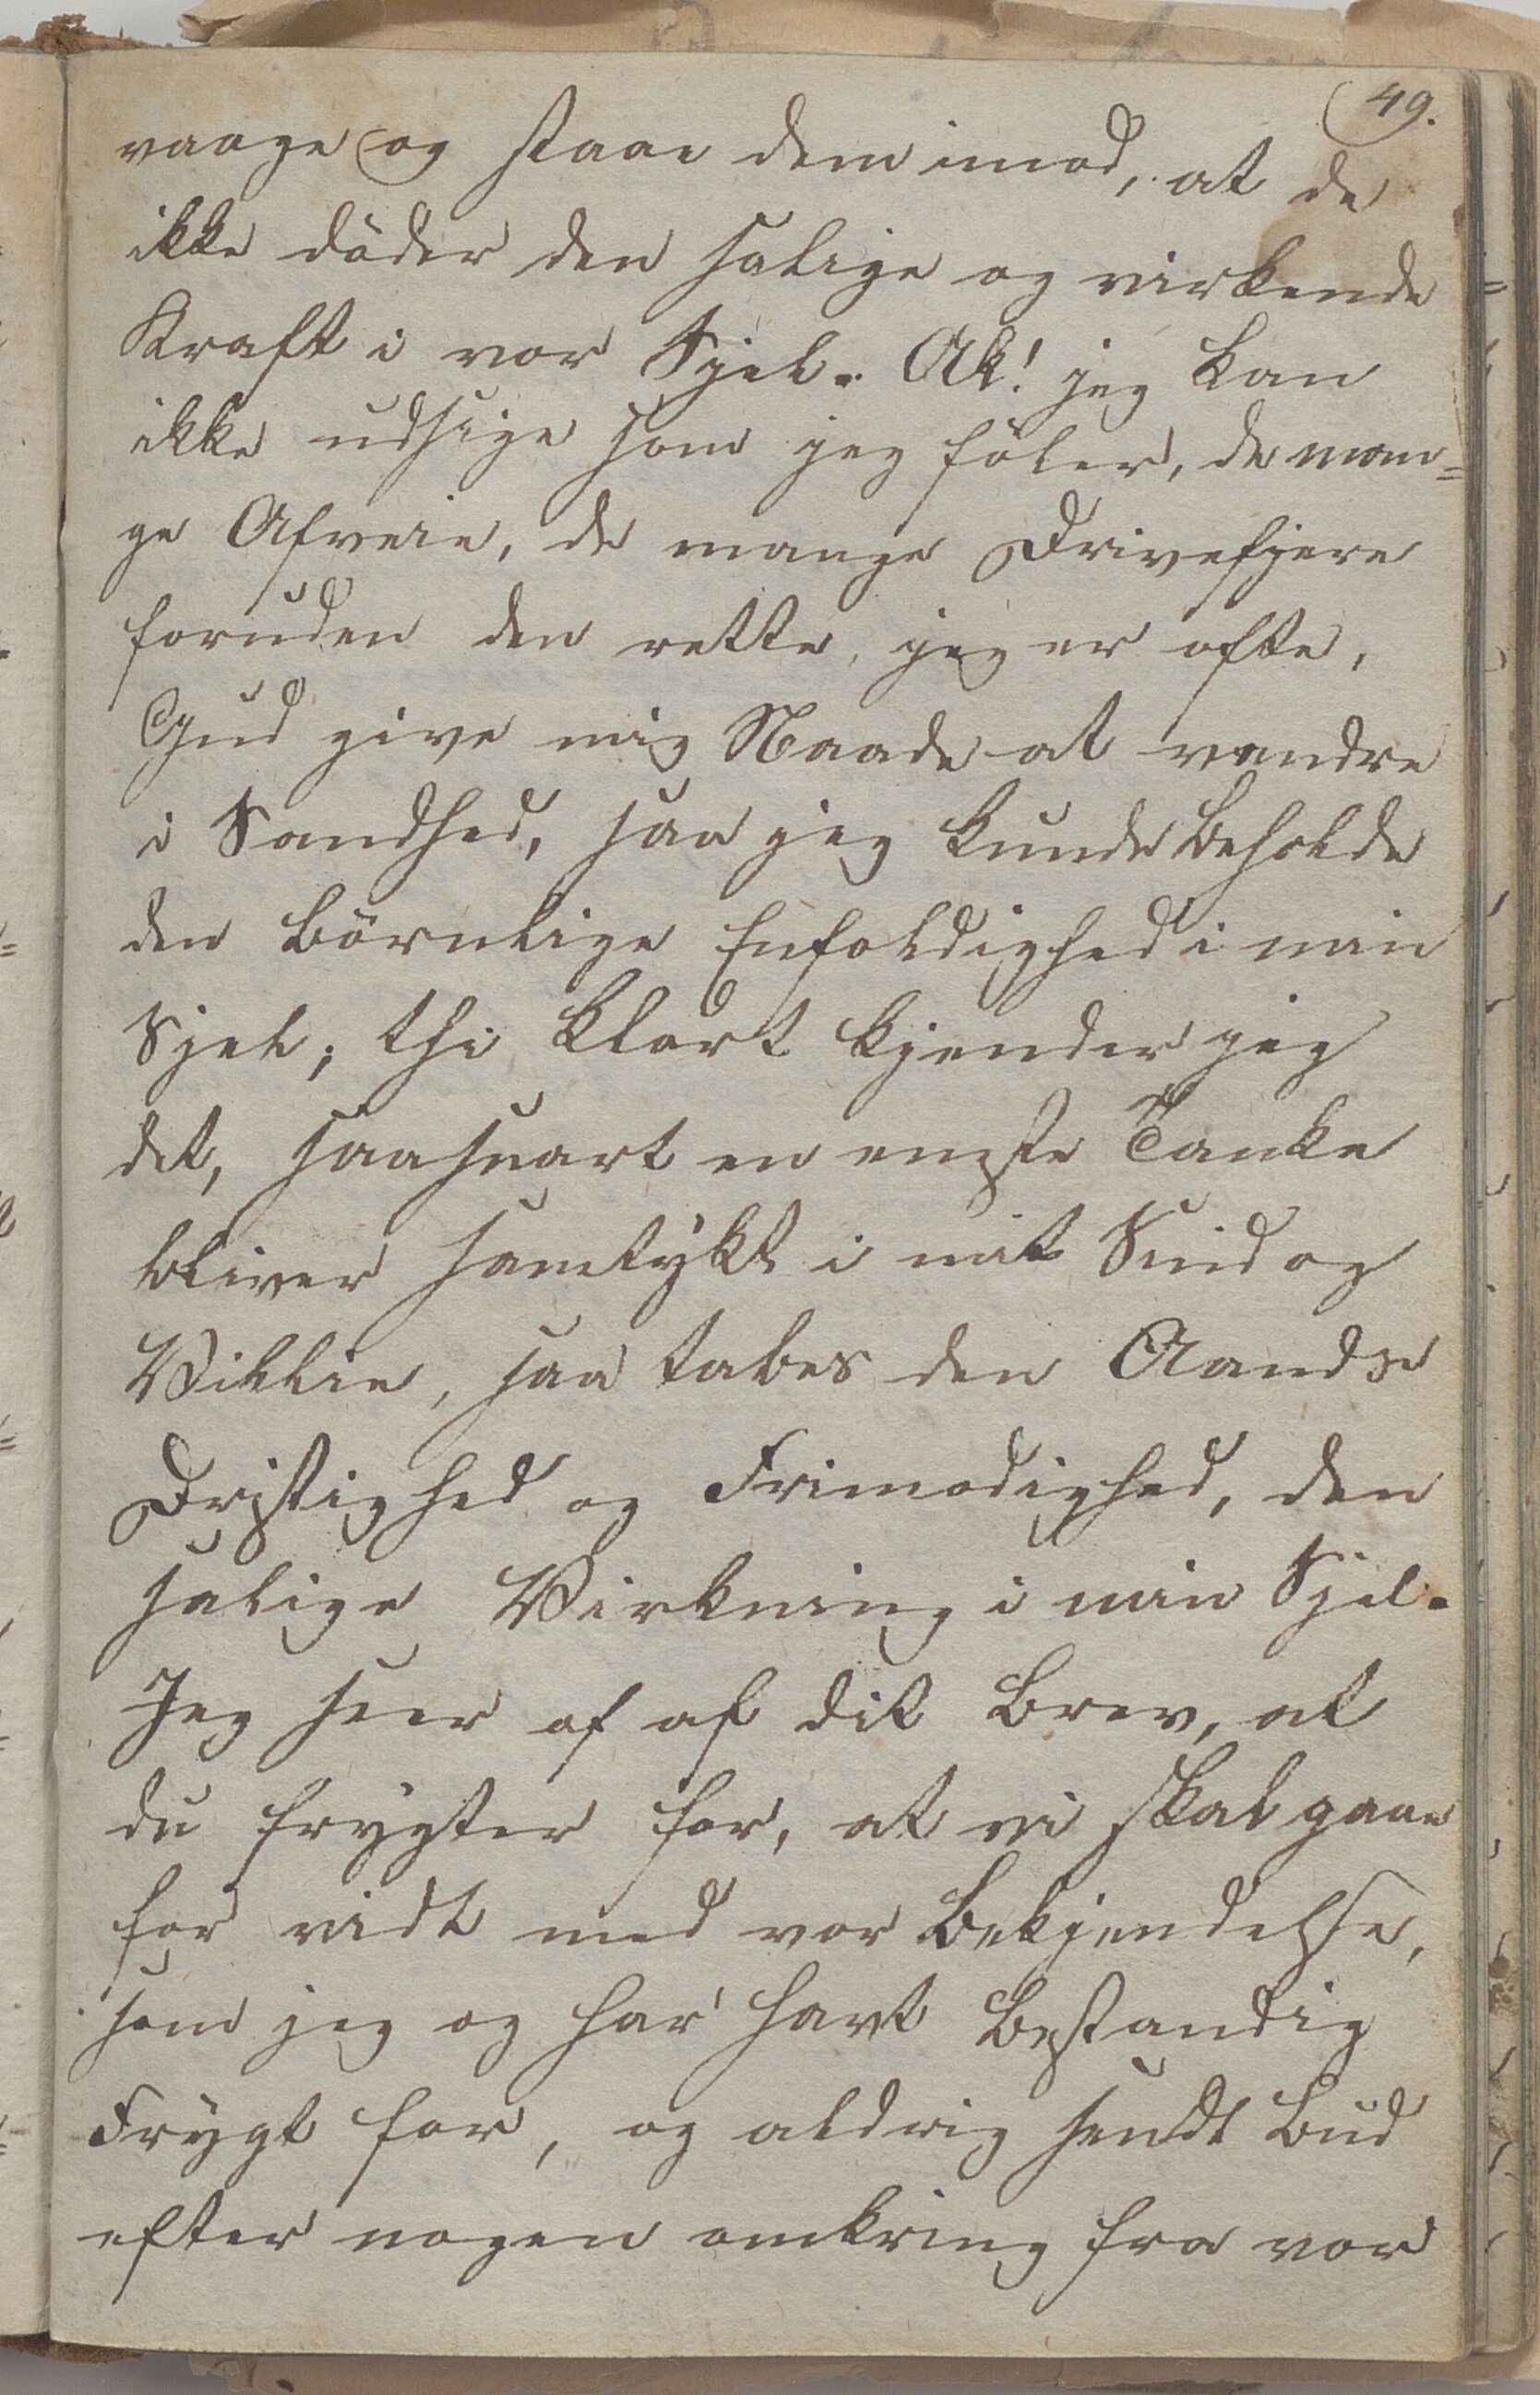 49.
vaage og staae dem imod, at de
ikke döder den salige og virkende
Kraft i vor Sjel. Ak! jeg kan
ikke udsige som jeg föler, de man=
ge Afveie, de mange Drivefjere
foruden den rette, jeg er ofte,
Gud give mig Naade at vandre
i Sandhed, saa jeg kunde beholde
den börnlige Enfoldighed i min
Sjel; thi klart kjender jeg
det, saasnart en eneste Tanke
bliver samtykt i mit Sind og
Villie, saa tabes den Aands
Dristighed og Frimodighed, den
salige Virkning i min Sjel.
Jeg seer af af dit Brev, at
du frygter for, at vi skal gaae
for vidt med vor Bekjendelse,
som jeg og har havt bestandig
Frygt for, og aldrig sendt Bud
efter nogen omkring fra vor